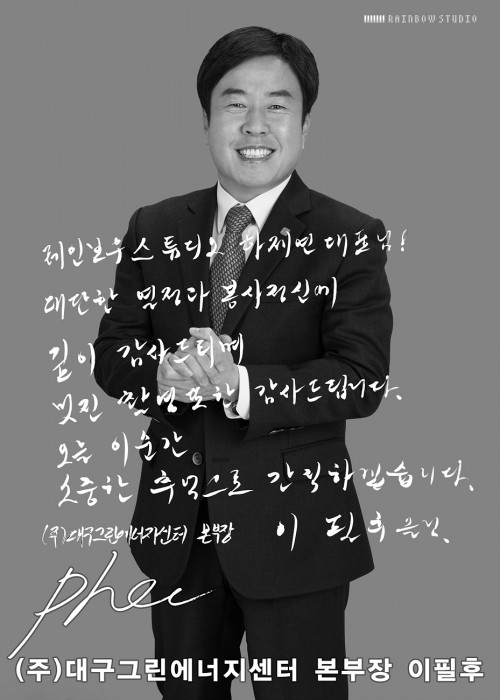 RAINBOW STUDIO
레인보우스튜디오 하제민 대표님!
대단한 열정과 봉사정신에
깊이 감사드리며
멋진 촬영 또한 감사드립니다.
오늘 이순간
소중한 추억으로 간직하겠습니다.
(주)대구그린에너지센터 본부장 이 필 후 드림.
(주)대구그린에너지센터 본부장 이필후